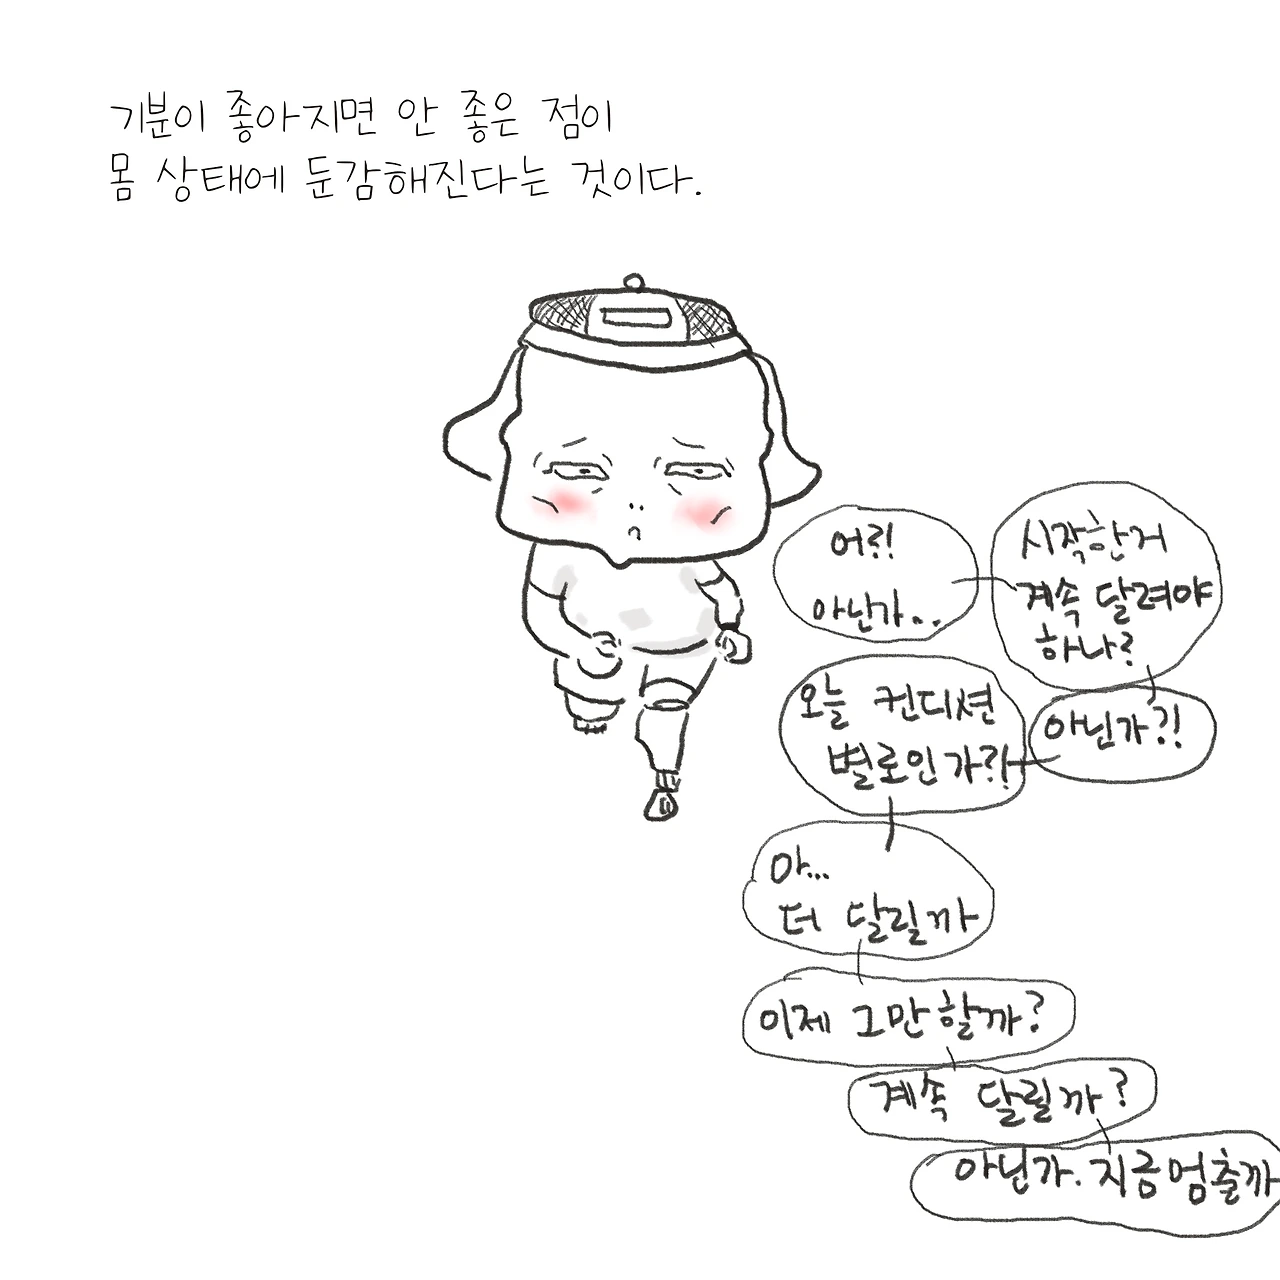 기분이 좋아지면 안 좋은 점이
몸 상태에 둔감해진다는 것이다.
어?!
아닌가..
시작한거
계속 달려야
하나?
아닌가?!
오늘 컨디션
별로인가?!
아...
더 달릴까
이제 그만할까?
계속 달릴까?
아닌가. 지금 멈출까